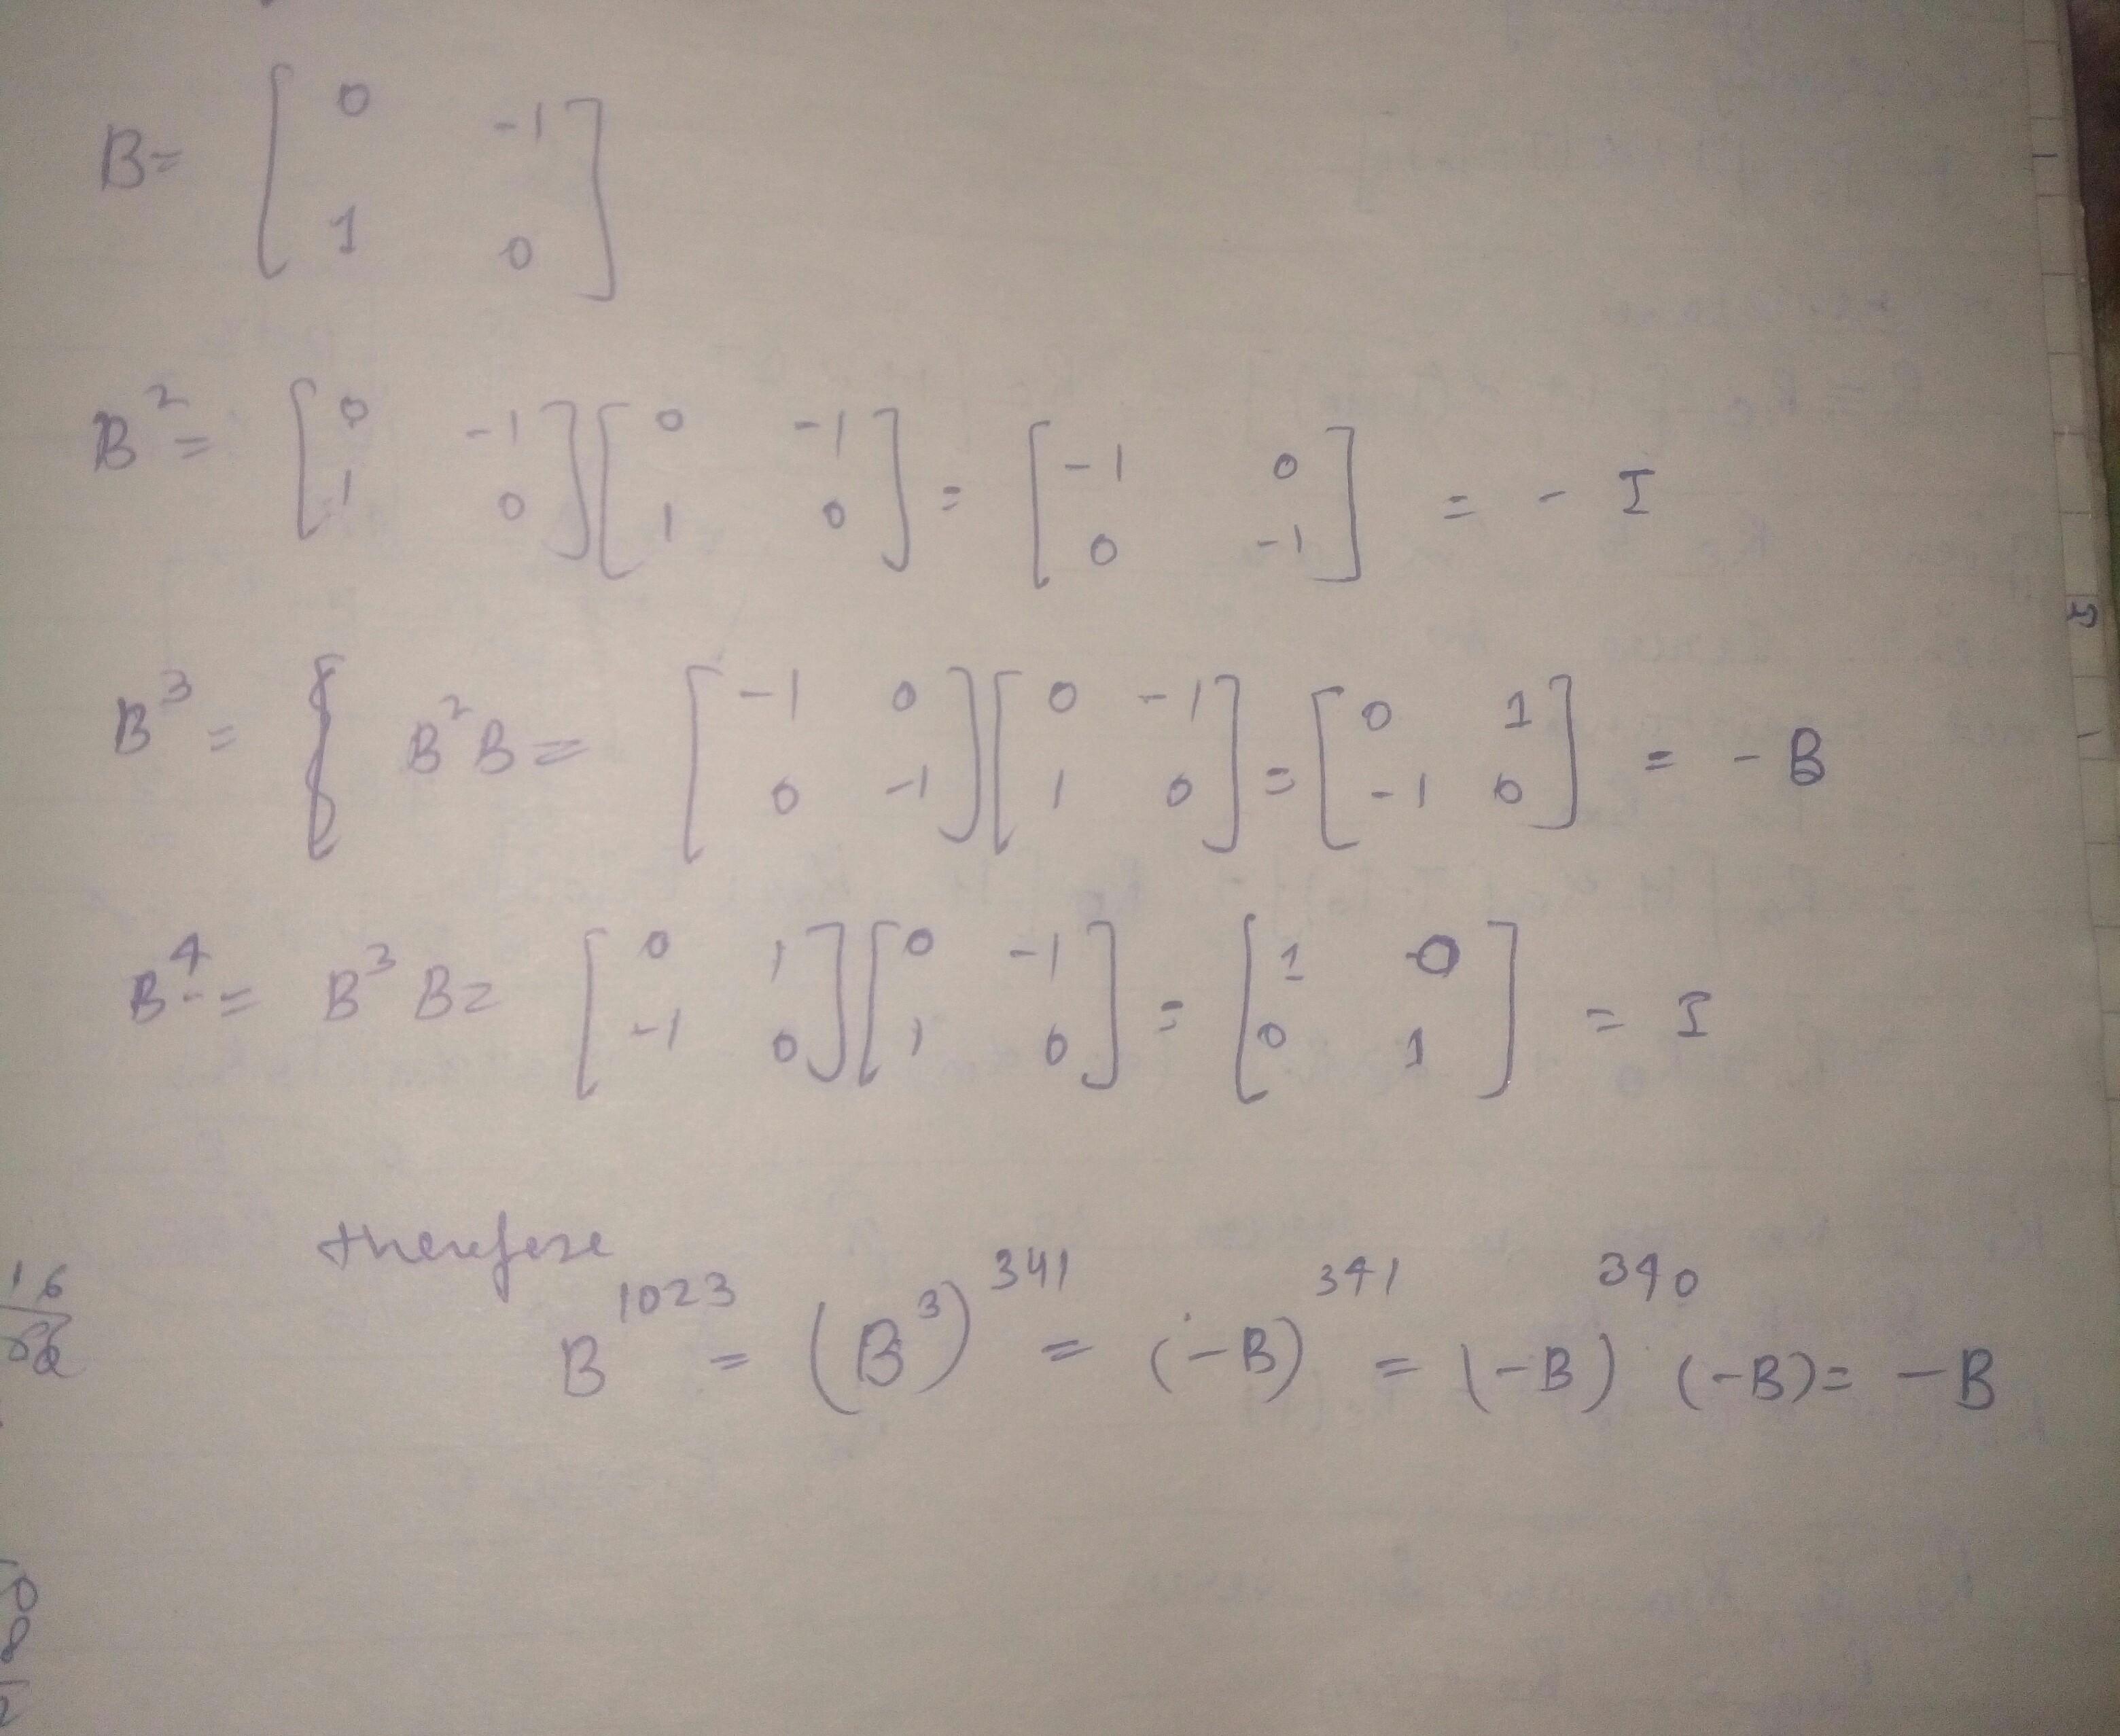 B = [ 0 -1 ; 1 0 ]
B² = [ 0 -1 ; 1 0 ] [ 0 -1 ; 1 0 ] = [ -1 0 ; 0 -1 ] = - I
B³ = B²B = [ -1 0 ; 0 -1 ] [ 0 -1 ; 1 0 ] = [ 0 1 ; -1 0 ] = - B
B⁴ = B³ B = [ 0 1 ; -1 0 ] [ 0 -1 ; 1 0 ] = [ 1 0 ; 0 1 ] = I
therefore
B¹⁰²³ = (B³)³⁴¹ = (-B)³⁴¹ = (-B)³⁴⁰ (-B) = -B
16